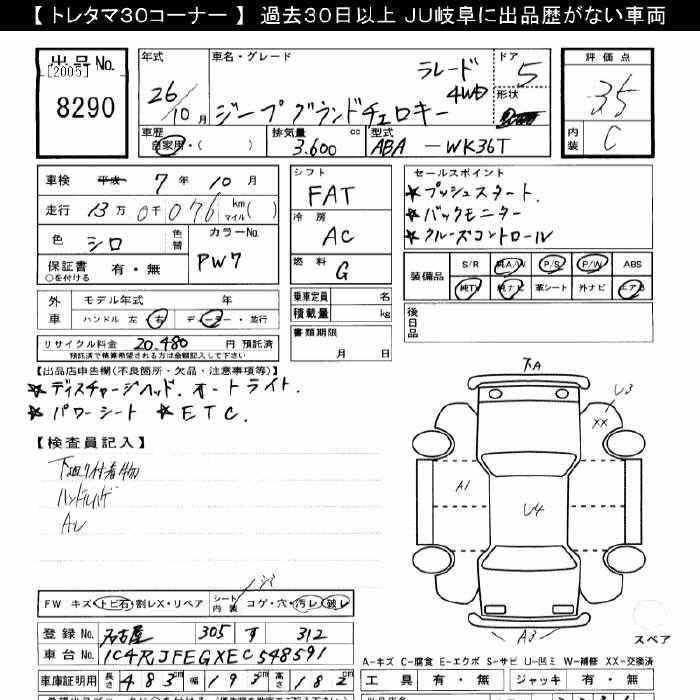 【 トレタマ30コーナー 】 過去30日以上 JU岐阜に出品歴がない車両
出品 No.
[2005]
8290
年式
26/10月
車名・グレード
ラレード
4WD
ジープグランドチェロキー
ドア
5
形状
評価点
3.5
内装
C
車歴
自家用・( )
排気量
3.600 cc
型式
ABA - WK36T
車検 平成 7年 10月
走行 13万 0千 076 km マイル( )
色 シロ 色替
カラーNo.
PW7
保証書 有・無
○を付ける
シフト
FAT
冷房
AC
燃料
G
セールスポイント
★プッシュスタート.
★バックモニター
★クルーズコントロール
装備品
S/R 純A/W P/S P/W ABS
純TV 純ナビ 革シート 外ナビ エアB
外車
モデル年式 年
ハンドル 左 右 ディーラー・並行
乗車定員 名
積載量 kg
後日品
リサイクル料金 20.480 円 預託済
預託済で精算希望される方は金額記入して下さい
書類期限
月 日
【出品店申告欄(不良箇所・欠品・注意事項等)】
★ディスチャージヘッド. オートライト.
★パワーシート ★ETC.
【検査員記入】
下廻り付着物
ハンドルハゲ
下A
U3
XX
A1
U4
A3
スペア
FW キズ・トビ石・割レX・リペア
シート内装 コゲ・穴・汚レ・破レ
登録 No. 名古屋 305 す 312
車台 No. 1C4RJFEGXEC548591
車庫証明用 長さ 483cm 幅 195cm 高さ 182cm
A-キズ C-腐食 E-エクボ S-サビ U-凹ミ W-補修 XX-交換済
工具 有・無 ジャッキ 有・無